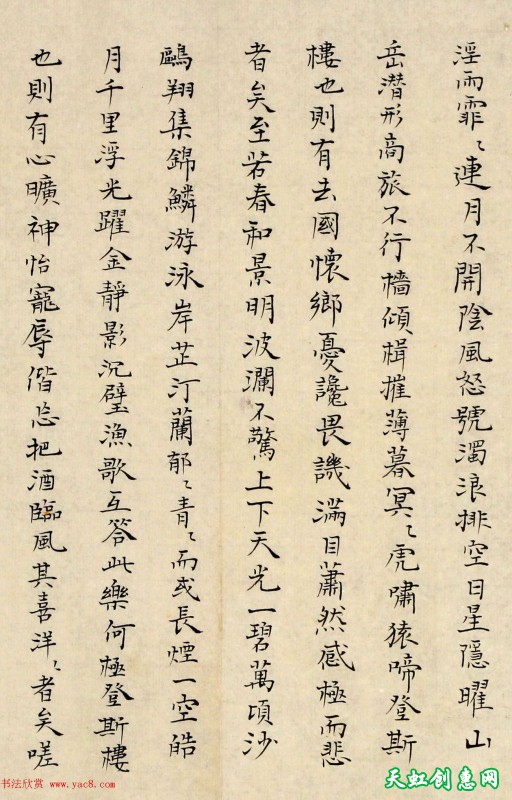 淫雨霏〻連月不開陰風怒號濁浪排空日星隱曜山
岳潛形商旅不行檣傾楫摧薄暮冥〻虎嘯猿啼登斯
樓也則有去國懷鄉憂讒畏譏滿目蕭然感極而悲
者矣至若春和景明波瀾不驚上下天光一碧萬頃沙
鷗翔集錦鱗游泳岸芷汀蘭郁〻青〻而或長煙一空皓
月千里浮光躍金靜影沉璧漁歌互答此樂何極登斯樓
也則有心曠神怡寵辱偕忘把酒臨風其喜洋〻者矣嗟
书法欣赏 www.yac8.com
天虹创惠网